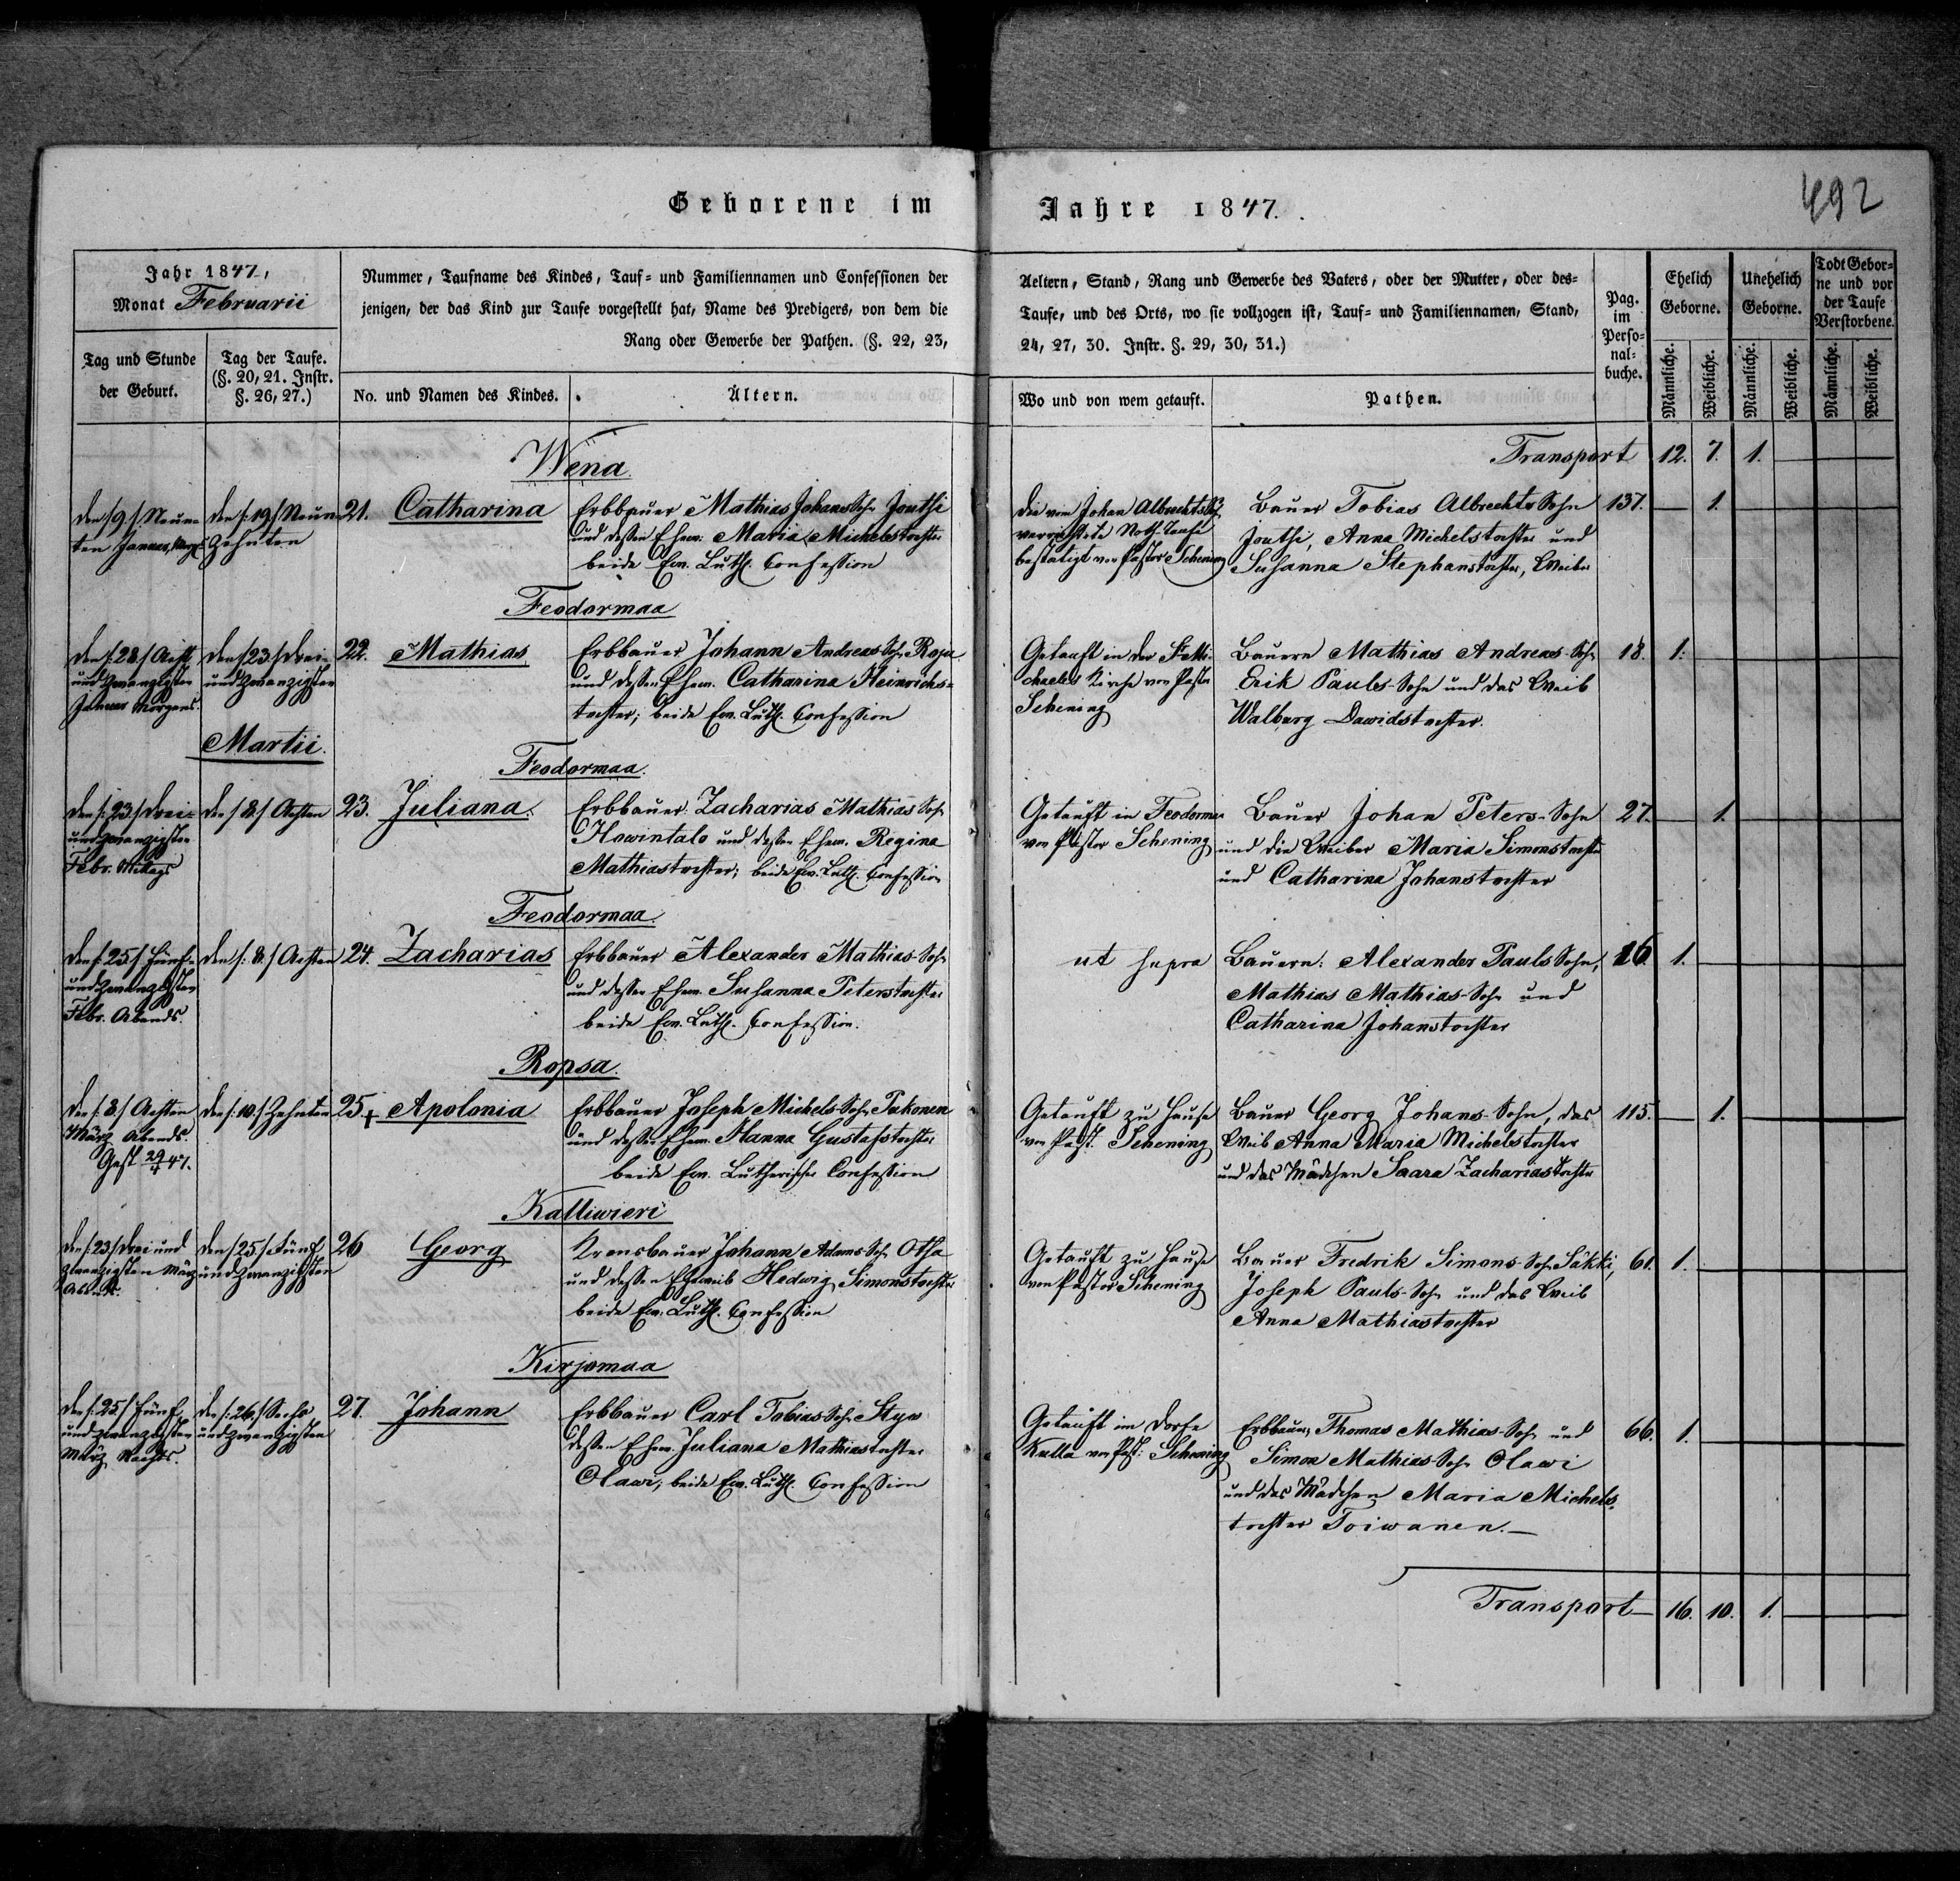 Geborene im Jahre 1847.
492
Jahr 1847,
Monat Februarii
Nummer, Taufname des Kindes, Tauf= und Familiennamen und Confessionen der
jenigen, der das Kind zur Taufe vorgestellt hat, Name des Predigers, von dem die
Rang oder Gewerbe der Pathen. (§. 22, 23,
Aeltern, Stand, Rang und Gewerbe des Vaters, oder der Mutter, oder des=
Taufe, und des Orts, wo sie vollzogen ist, Tauf= und Familiennamen, Stand,
24, 27, 30. Instr. §. 29, 30, 31.)
Pag.
im
Perso=
nal=
buche.
Ehelich
Geborne.
Unehelich
Geborne.
Todt Gebor=
ne und vor
der Taufe
Verstorbene.
Tag und Stunde
der Geburt.
Tag der Taufe.
(§. 20, 21. Instr.
§. 26, 27.)
No. und Namen des Kindes.
Ältern.
Wo und von wem getauft.
Pathen.
Männliche.
Weibliche.
Männliche.
Weibliche.
Männliche.
Weibliche.
Transport 12. 7. 1.
Wena.
den /:9:/ Neun=
ten Januar, Morg.
den /:19:/ Neun
Zehnten
21. Catharina
Erbbauer Mathias Johans Sohn Jouthi
und dessen Ehew. Maria Michelstochter
beide Ev. Luth. Confession
Die von Johan Albrechts S.
verrichtete Noth-Taufe
bestätigt von Pastor Schening
Bauer Tobias Albrechts Sohn
Jouthi, Anna Michelstochter und
Susanna Stephanstochter, Weiber
137. 1.
Feodormaa
den /:28:/ Acht
und zwanzigsten
Januar Morgens.
den /:23:/ drei=
und zwanzigsten
22. Mathias
Erbbauer Johann Andreas-Sohn Roja
und dessen Ehew. Catharina Heinrichs=
tochter; beide Ev. Luth. Confession
Getauft in der St. Mi=
chaelis Kirche von Pastor
Schening
Bauern Mathias Andreas-Sohn
Erik Pauls-Sohn und das Weib
Walburg Dawidstochter.
18. 1.
Martii.
Feodormaa.
den /:23:/ drei=
und zwanzigsten
Febr. Mittags
den /:8:/ Achten
23. Juliana.
Erbbauer Zacharias Mathias Sohn
Howintalo und dessen Ehew. Regina
Mathiastochter; beide Ev. Luth. Confession
Getauft in Feodormaa
von Pastor Schening
Bauer Johan Peters-Sohn
und die Weiber Maria Simonstochter
und Catharina Johanstochter
27. 1.
Feodormaa.
den /:25:/ fünf=
und zwanzigsten
Febr. Abends.
den /:8:/ Achten
24. Zacharias
Erbbauer Alexander Mathias-Sohn
und dessen Ehew. Susanna Peterstochter
beide Ev. Luth. Confession.
ut supra
Bauern: Alexander Pauls Sohn,
Mathias Mathias-Sohn und
Catharina Johanstochter
16. 1.
Ropsa.
den /:8:/ Achten
März Abends.
Gest 29/4 47.
den /:10:/ Zehnten
25. + Apolonia
Erbbauer Joseph Michels-Sohn Pakonen
und dessen Ehew. Hanna Gustafstochter
beide Ev. Lutherischer Confession
Getauft zu Hause
von Past. Schening
Bauer Georg Johans-Sohn, das
Weib Anna Maria Michelstochter
und das Mädchen Saara Zachariastochter
115. 1.
Kalliwieri
den /:23:/ drei und
zwanzigsten März
den /:25:/ Fünf
und zwanzigsten
26 Georg
Kronsbauer Johann Adams-Sohn Otsa
und dessen Eheweib Hedwig Simonstochter
beide Ev. Luth. Confession
Getauft zu Hause
von Pastor Schening
Bauer Fredrik Simons-Sohn Säkki,
Joseph Pauls-Sohn und das Weib
Anna Mathiastochter
61. 1.
Kirjamaa
den /:25:/ fünf
und zwanzigsten
März Nachts.
den /:26:/ Sechs
und zwanzigsten
27. Johann
Erbbauer Carl Tobias Sohn Styw
dessen Ehew. Juliana Mathiastochter
Olawi, beide Ev. Luth. Confession
Getauft im Dorfe
Kulla von Past: Schening
Erbbauern Thomas Mathias-Sohn und
Simon Mathias-Sohn Olawi
und das Mädchen Maria Michels
tochter Toiwanen.—
66. 1.
Transport 16. 10. 1.